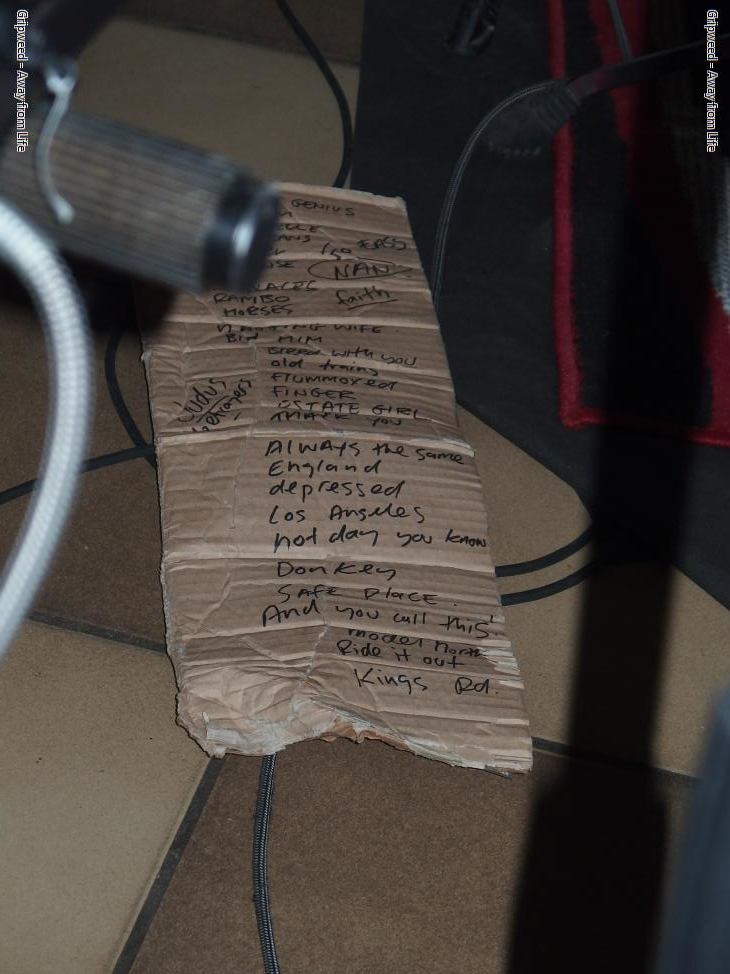 Gripweed = Away from Life
Gripweed = Away from Life
GENIUS
NAN
faith
RAMBO
HORSES
WIFE
HIM
with you
old trains
Flummoxed
FINGER
ESTATE GIRL
THANK YOU
Judus
Always the same
England
depressed
Los Angeles
hot day you know
Donkey
Safe Place.
And you call this
Model
Ride it out
Kings Rd.